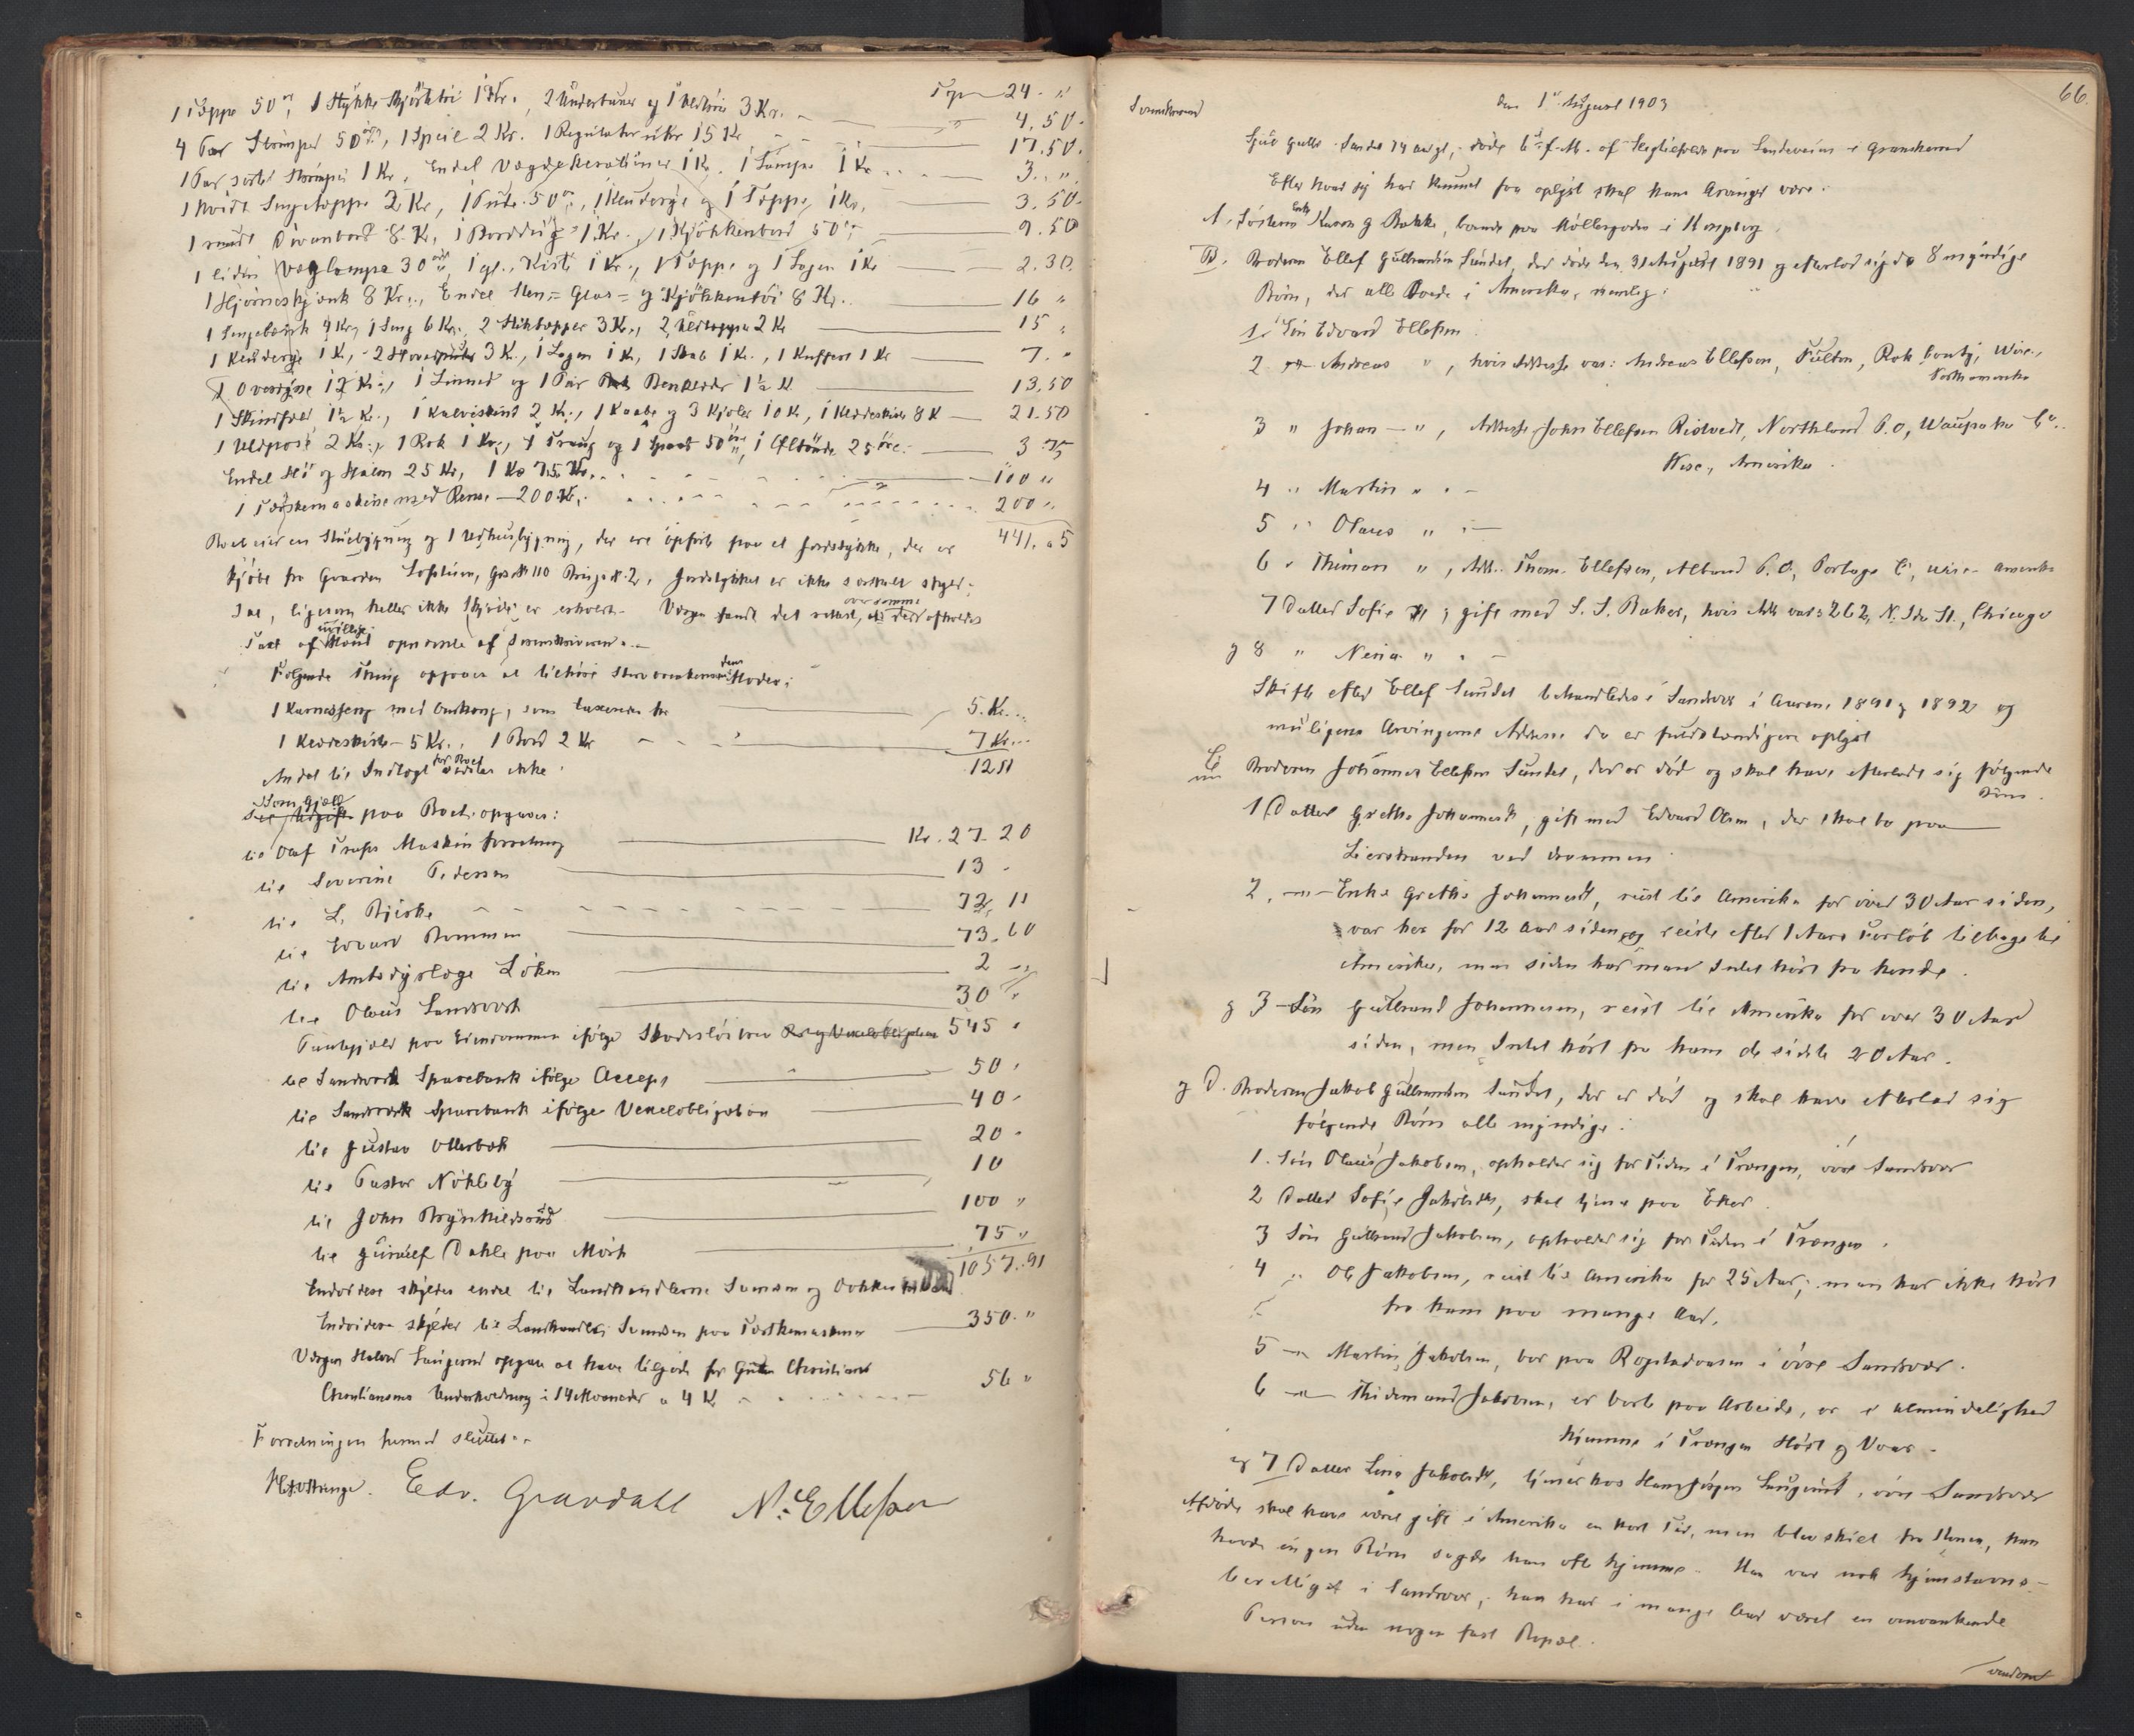 Trp 24. "
1 Tæppe 50 ør, 1 Stykke Skjørttøi 1 Kr., 2 Underbuxer og 1 3 Kr. — 4,50.
4 Par Strømper 50 øre, 1 Speil 2 Kr. 1 Regulator uhr 15 Kr — 17.50.
1 Par sorte Strømper 1 Kr, Endel Vægdekorationer 1 Kr. 1 Lampe 1 Kr 3. "
1 hvidt Sengetæppe 2 Kr, 1 Pude 50 ør, 1 og 1 Tæppe 1 Kr, 3.50.
1 rundt Divanbord 8 Kr, 1 Borddug 1 Kr., 1 Kjøkkenbord 50 ør 9.50
1 liden Væglampe 30 øre, 1 gl. Kiste 1 Kr., 1 Tæppe og 1 Lagen 1 Kr 2.30.
1 Hjørneskjænk 8 Kr., Endel Sten= Glas= og Kjøkkentøi 8 Kr. 16 "
1 Sengebænk 4 Kr, 1 Seng 6 Kr., 2 Stiktæpper 3 Kr., 2 Uldtæpper 2 Kr 15 "
1 1 Kr, 2 Hovedputer 3 Kr., 1 Lagen 1 Kr, 1 Skab 1 Kr., 1 Kuffert 1 Kr 7. "
1 Overdyne 12 Kr., 1 Linned og 1 Par Benklæder 1½ Kr 13,50
1 Skindfeld 1½ Kr., 1 Kalveskind 2 Kr., 1 Kaabe og 3 Kjoler 10 Kr, 1 Klædeskab 8 K 21.50
1 Uldpose 2 Kr., 1 Rok 1 Kr., 1 Traug og 1 Spand 50 øre, 1 Øltønde 25 øre. 3 75
Endel Hø og Halm 25 Kr, 1 Ko 75 Kr. 100 "
1 Tærskemaskine med Rem — 200 Kr. 200 "
Boet eier en Stuebygning og 1 Uthusbygning, der ere opført paa et Jordstykke, der er 441. 05
kjøbt fra Gaarden Gr. N 110 Brugs N. 2, Jordstykket er ikke særskilt skyld-
sat, ligesom heller ikke Skjøde er erhvervet. Værgen fandt det rettest, at der over samme afholdes
Taxt af uvillige Mænd opnævnte af Sorenskriveren.
Følgende Ting opgaves at tilhøre Stervboenkens Moder:
1 Karmseng med Omhæng, som taxeredes til 5. Kr.
1 Klædeskiste 5 Kr., 1 Bord 2 Kr 7 Kr.
Andet til Indtægt for Boet vidstes ikke. 12
Som Gjæld paa Boet opgaves:
til Olaf Trafs Maskinforretning Kr. 27. 20
til Severine Pedersen 13 "
til L. Bjerke 72, 11
til Edvard Bommen 73. 60
til Amtssygelæge Løken 2
til Olaus Landsverk 30 "
Pantegjæld paa Eiendommen ifølge Skadesløsbrev 545 "
til Sandsværd Sparebank ifølge Accept 50 "
til Sandsværd Sparebank ifølge Vexelobligation 40 "
til Gustav Ollerbæk 20 "
til Pastor Nøkleby 10
til John Brynhildsrud 100 "
til Gunulf Dahle paa Mørk 75 "
1057. 91
Endvidere skyldes endel til Landhandlerne Svensen og
Endvidere skyldes til Landhandler Svensen paa Tærskemaskinen 350. "
Værgen Halvor Laugerud opgav at have tilgode for Gutten Christian
Christiansens Underholdning i 14 Maaneder a 4 Kr 56 "
Forretningen hermed sluttet.
Edv. Gravdahl N. Ellefsen
66.
Sorenskriveren
den 1ste August 1903
Gulbr. Sundet 74 aar gl., døde 6te f. M. af paa Landeveien i Granskerud
Efter hvad jeg har kunnet faa oplyst skal hans Arvinger være:
A. Søsteren Karen G Bakke, boende paa Møllergaden i Kongsberg
B. Broderen Ellef Gulbrandsen Sundet, der døde den 31 August 1891 og efterlod sig da 8 myndige
Børn, der alle boede i Amerika, nemlig:
1. Søn Edvard Ellefsen
2 — Andreas ", hvis Adresse var: Andreas Ellefsen, Fulton, Rok County, Wisc.,
Nordamerika
3 " Johan — ", Adresse John Ellefsen Risteedt, Northland P.O, Waupaka Co.
Wisc., Amerika.
4 " Martin " " —
5 " Olaus " " —
6 " Thimon ", Adr. Thom. Ellefsen, Alband P.O, Portage C, Wisc. Amerika
7 Datter Sofie ", gift med S. S. Baker, hvis Adr var 262, N. St., Chicago
og 8 " Neria " " —
Skifte efter Ellef Sundet behandledes i Sandsvær i Aarene 1891 og 1892 og
muligens Arvingernes Adresse da er fuldstændigere oplyst
C Broderen Johannes Ellefsen Sundet, der er død og skal have efterladt sig følgende
Børn.
1 Datter Grethe Johannesdt, gift med Edvard Olsen, der skal bo paa
Lierstranden ved Drammen
2. — Enke Grethe Johannesdt, reist til Amerika for over 30 Aar siden,
var her for 12 Aar siden og reiste efter 1 Aars Forløb tilbage til
Amerika, men siden har man Intet hørt fra hende.
og 3 — Søn Gulbrand Johannesen, reist til Amerika for over 30 Aar
siden, men Intet hørt fra ham de sidste 20 Aar.
og D. Broderen Jakob Gulbrandsen Sundet, der er død og skal have efterlad sig
følgende Børn alle myndige:
1. Søn Olaus Jakobsen, opholder sig for Tiden i Trangen, øvre Sandsvær
2 Datter Sofie Jakobsdt, skal tjene paa Eker.
3 Søn Gulbrand Jakobsen, opholder sig for Tiden i Trangen.
4 " Ole Jakobsen, reist til Amerika for 25 Aar; man har ikke hørt
fra ham paa mange Aar.
5 — Martin Jakobsen, bor paa Rogstadaasen i øvre Sandsvær.
6 — Thidemand Jakobsen, er borte paa Arbeide, er i Almindelighed
hjemme i Trangen Høst og Vaar.
og 7 Datter Lina Jakobsdt, tjener hos Hans Jørgen Laugerud, øvre Sandsvær
Afdøde skal have været gift i Amerika en kort Tid, men blev skilt fra Konen, han
havde ingen Børn sagde han ofte hjemme. Han var nok hjemstavns-
berettiget i Sandsvær; han har i mange Aar været en omvankende
Person uden nogen fast Bopæl.